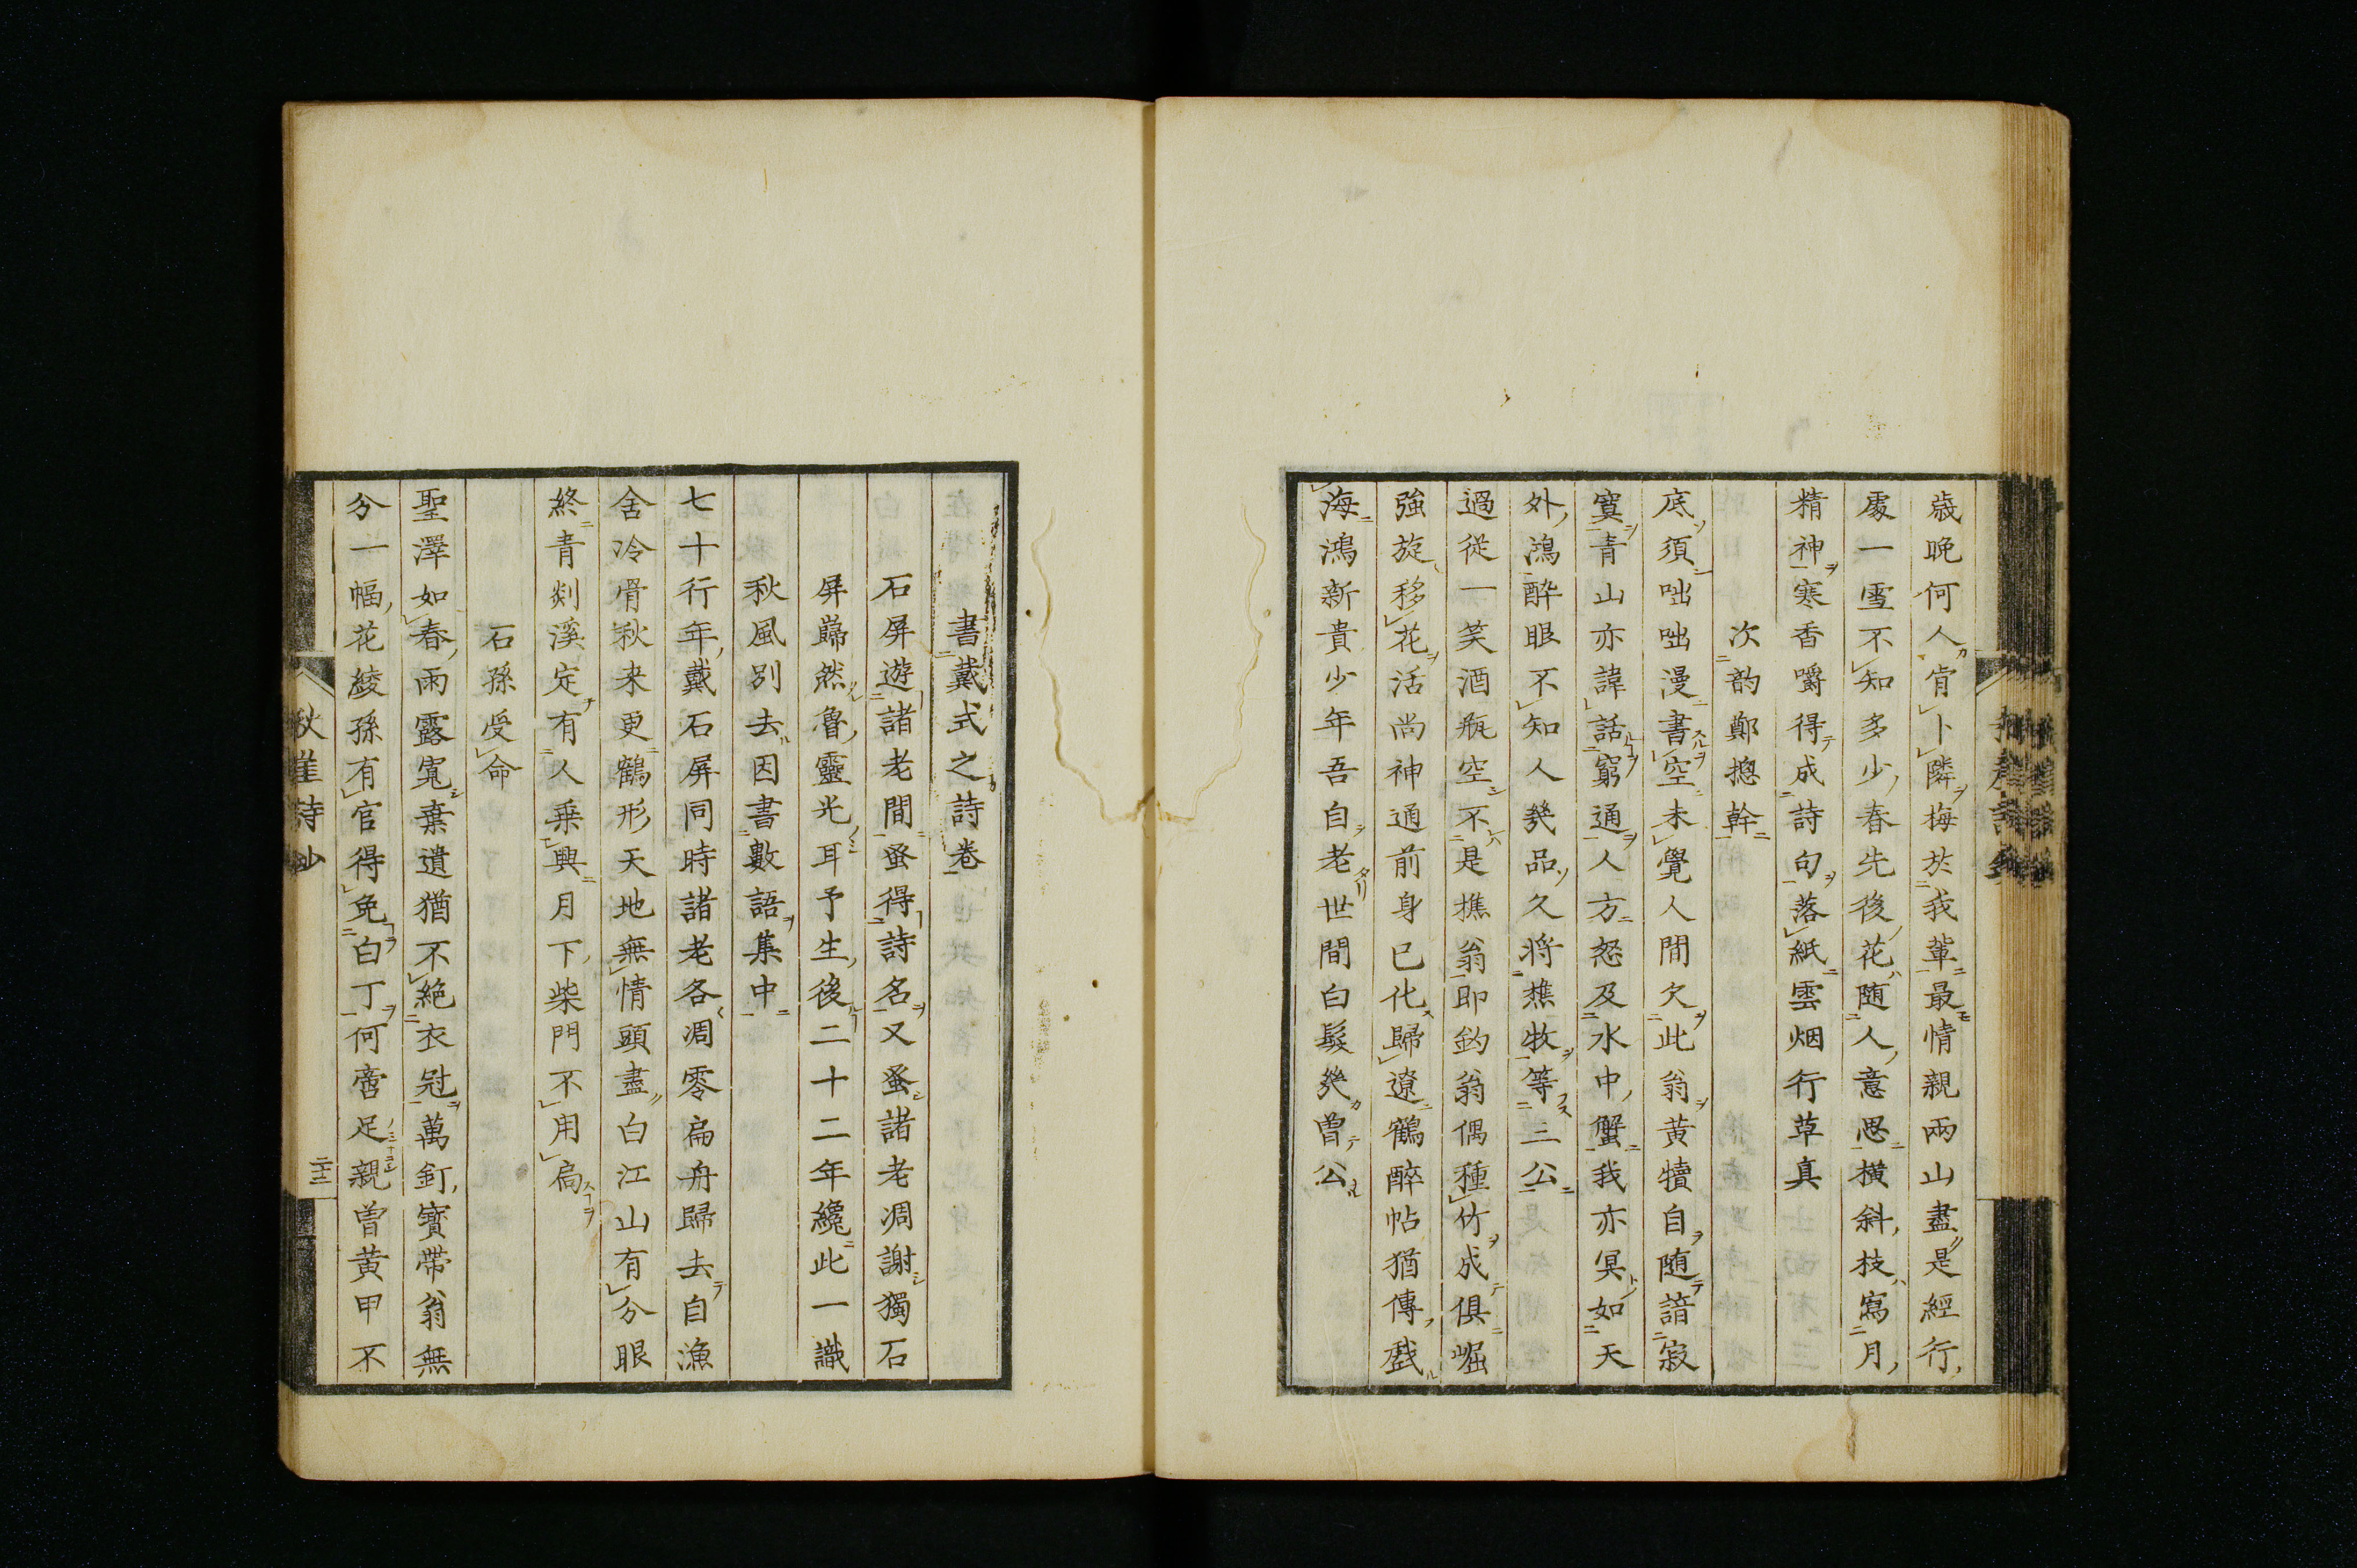 歳晩何人肯卜隣梅於我輩最情親兩山盡是經行
處一雪不知多少春先後花随人意思横斜枝寫月
精神寒香嚼得成詩句落紙雲烟行草真
次韵鄭摠幹
底須咄咄漫書空未覺人間欠此翁黄犢自随諳寂
寞青山亦諱話窮通人方怒及水中蟹我亦冥如天
外鴻醉眼不知人幾品久将樵牧等三公
過従一笑酒瓶空不是樵翁即釣翁偶種竹成俱崛
強旋移花活尚神通前身已化歸遼鶴醉帖猶傳戲
海鴻新貴少年吾自老世間白髮幾曽公
書戴式之詩卷
石屏遊諸老間蚤得詩名又蚤諸老凋謝獨石
屏巋然魯靈光耳予生後二十二年纔此一識
秋風別去因書數語集中
七十行年戴石屏同時諸老各凋零扁舟歸去自漁
舍冷骨秋来更鶴形天地無情頭盡白江山有分眼
終青剡溪定有人乗興月下柴門不用扃
石孫受命
聖澤如春雨露寛棄遺猶不絶衣冠萬釘寶帶翁無
分一幅花綾孫有官得免白丁何啻足親曽黄甲不
秋崖詩鈔
二十三